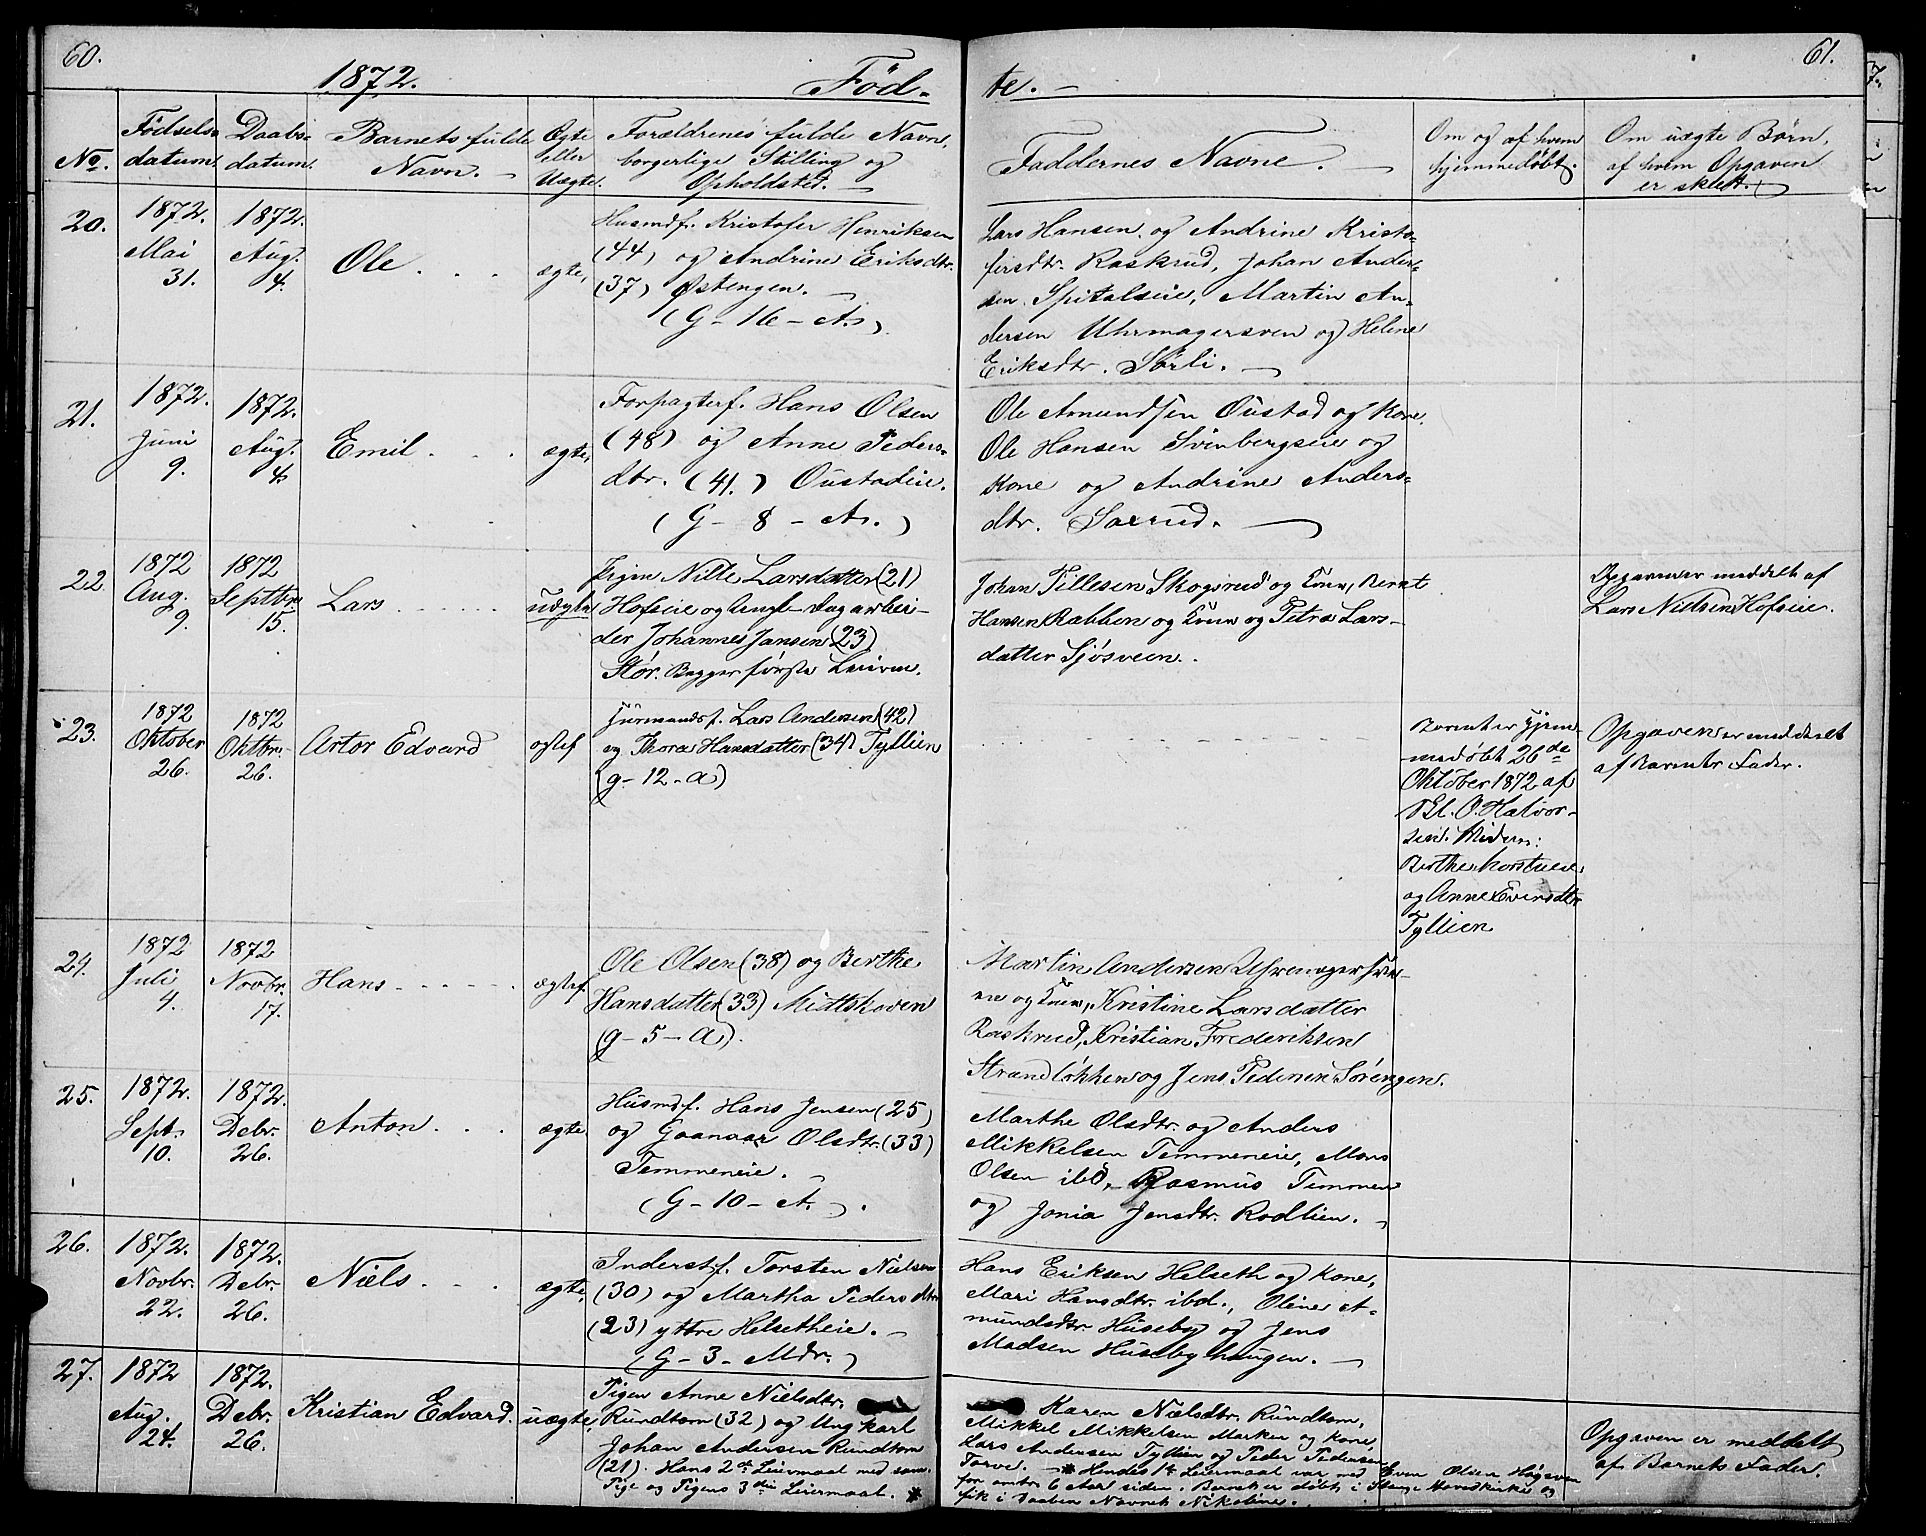 60.
1872.
Fød-
te.
61.
No.
Fødsels-
datum.
Daabs-
datum.
Barnets fulde
Navn.
Ægte
eller
Uægte.
Forældrenes fulde Navn,
borgerlige Stilling og
Opholdsted.
Faddernes Navne.
Om og af hvem
hjemmedøbt.
Om uægte Børn,
af hvem Opgaven
er skeet.
20.
1872.
Mai
31.
1872.
Aug.
4.
Ole
ægte,
Husmdf. Kristofer Henriksen
(44) og Andrine Eriksdtr.
(37) Østengen.
(G - 16 - A.)
Lars Hansen og Andrine Kristo-
fersdtr. Raskrud, Johan Ander-
sen Spitalseie, Martin An-
dersen Uhrmagersven og Helene
Eriksdtr. Sørli.
21.
1872.
Juni
9.
1872.
Aug.
4.
Emil
ægte,
Forpagterf. Hans Olsen
(48) og Anne Peders-
dtr. (41.) Oustadeie.
(G - 8 - A.)
Ole Amundsen Oustad og Kone,
Ole Hansen Svenbergseie og
Kone og Andrine Anders-
dtr. Saxrud.
22
1872
Aug.
9.
1872
Septtbr
15.
Lars
uægte
Pigen Nille Larsdatter (21)
Hofseie og Ungk. Dagarbei-
der Johannes Jansen (23)
Stór. Begges første Leierm.
Johan Tillesen Skogsrud og Kone, Bernt
Hansen Rabben og Kone og Petra Lars-
datter Sjøsveen.
Opgaven er meddelt af
Lars Nielsen Hofseie.
23.
1872
Oktober
26.
1872
Oktbr.
26.
Artor Edvard
ægtef
Husmandsf. Lars Andersen (42)
og Thora Hansdatter (34) Tyllien
(g - 12 - a)
Barnet er hjem-
medøbt 26de
Oktober 1872 af
Kl. O. Halvor-
sen. Vidner:
Berthe Korstueie
og Anne Evensdtr
Tyllien
Opgaven er meddelt
af Barnets Fader.
24.
1872
Juli
4.
1872
Novbr.
17.
Hans
ægtef.
Ole Olsen (38) og Berthe
Hansdatter (33) Midtskoven
(g - 5 - a).
Martin Andersen Uhrmagersve-
en og Kone, Kristine Larsdatter
Raskrud, Kristian Frederiksen
Strandløkken og Jens Pedersen Sørengen.
25.
1872.
Sept.
10.
1872.
Debr.
26.
Anton
ægte
Husmdf. Hans Jensen (25)
og Gaanaar Olsdtr. (33)
Temmeneie.
(G - 10 - A.)
Marthe Olsdtr. og Anders
Mikkelsen Temmeneie, Mons
Olsen ibd, Rasmus Temmen
og Jonia Jensdtr. Rodlien.
26.
1872.
Novbr.
22.
1872.
Debr.
26.
Niels
ægte,
Inderstf. Torsten Nielsen
(30) og Martha Pedersdtr
(23) yttre Helsetheie.
(G - 3 - Mdr.)
Hans Eriksen Helseth og Kone,
Mari Hansdtr. ibd., Oline A-
mundsdtr. Huseby og Jens
Madsen Husebyhaugen.
27.
1872
Aug.
24.
1872.
Debr.
26.
Kristian Edvard.
uægte,
Pigen Anne Nielsdtr.
Rundtom (32) og Ungkarl
Johan Andersen Rundtom
(21). Hans 2det Leiermaal med sam.
Pige og Pigens 3die Leiermaal.
Karen Nielsdtr. Rundtom,
Mikkel Mikkelsen Marken og Kone,
Lars Andersen Tyllien og Peder Pedersen
Torve. Hendes 1te Leiermaal var med Even Olsen Høgaven
for omtr. 6 Aar siden. Barnet er døbt i Stange Hovedkirke og
fik i Daaben Navnet Nikoline.
Opgaven er meddelt
af Barnets Fader.